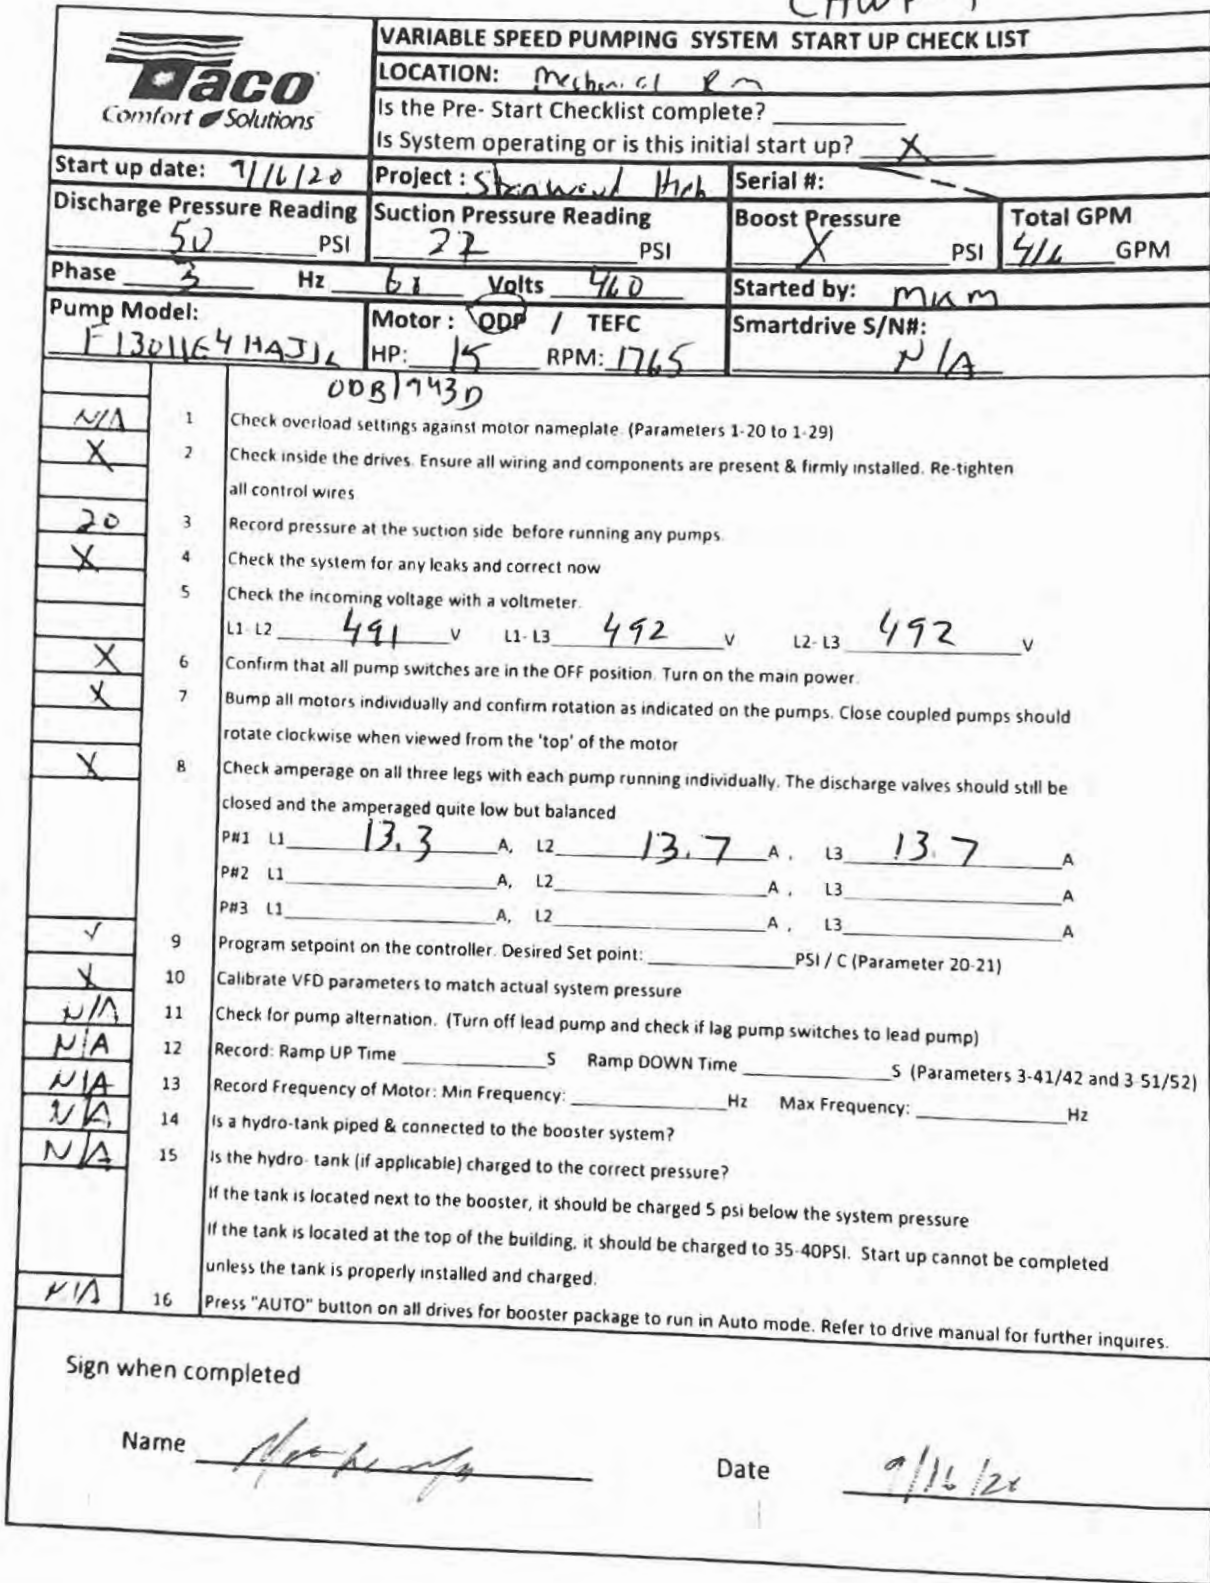 CHWP
VARIABLE SPEED PUMPING SYSTEM START UP CHECK LIST
Taco
Comfort Solutions
LOCATION: Mechanical Rm
Is the Pre- Start Checklist complete?
Is System operating or is this initial start up? X
Start up date: 9/16/20 Project : Stanwood High Serial #:
Discharge Pressure Reading Suction Pressure Reading Boost Pressure Total GPM
50 PSI 27 PSI X PSI 416 GPM
Phase 3 Hz Volts 460 Started by: MKM
Pump Model: Motor : ODP / TEFC Smartdrive S/N#:
HP: 15 RPM: 1765 N/A
N/A 1 Check overload settings against motor nameplate. (Parameters 1-20 to 1-29)
X 2 Check inside the drives. Ensure all wiring and components are present & firmly installed. Re-tighten
all control wires
20 3 Record pressure at the suction side before running any pumps.
X 4 Check the system for any leaks and correct now
5 Check the incoming voltage with a voltmeter.
L1- L2 491 V L1- L3 492 V L2- L3 492 V
X 6 Confirm that all pump switches are in the OFF position. Turn on the main power.
X 7 Bump all motors individually and confirm rotation as indicated on the pumps. Close coupled pumps should
rotate clockwise when viewed from the 'top' of the motor
X 8 Check amperage on all three legs with each pump running individually. The discharge valves should still be
closed and the amperaged quite low but balanced
P#1 L1 13.3 A, L2 13.7 A , L3 13.7 A
P#2 L1 A, L2 A , L3 A
P#3 L1 A, L2 A , L3 A
√ 9 Program setpoint on the controller. Desired Set point: PSI / C (Parameter 20-21)
X 10 Calibrate VFD parameters to match actual system pressure
N/A 11 Check for pump alternation. (Turn off lead pump and check if lag pump switches to lead pump)
N/A 12 Record: Ramp UP Time S Ramp DOWN Time S (Parameters 3-41/42 and 3-51/52)
N/A 13 Record Frequency of Motor: Min Frequency: Hz Max Frequency: Hz
N/A 14 Is a hydro-tank piped & connected to the booster system?
N/A 15 Is the hydro- tank (if applicable) charged to the correct pressure?
If the tank is located next to the booster, it should be charged 5 psi below the system pressure
If the tank is located at the top of the building, it should be charged to 35-40PSI. Start up cannot be completed
unless the tank is properly installed and charged.
N/A 16 Press "AUTO" button on all drives for booster package to run in Auto mode. Refer to drive manual for further inquires.
Sign when completed
Name
Date 9/16/20